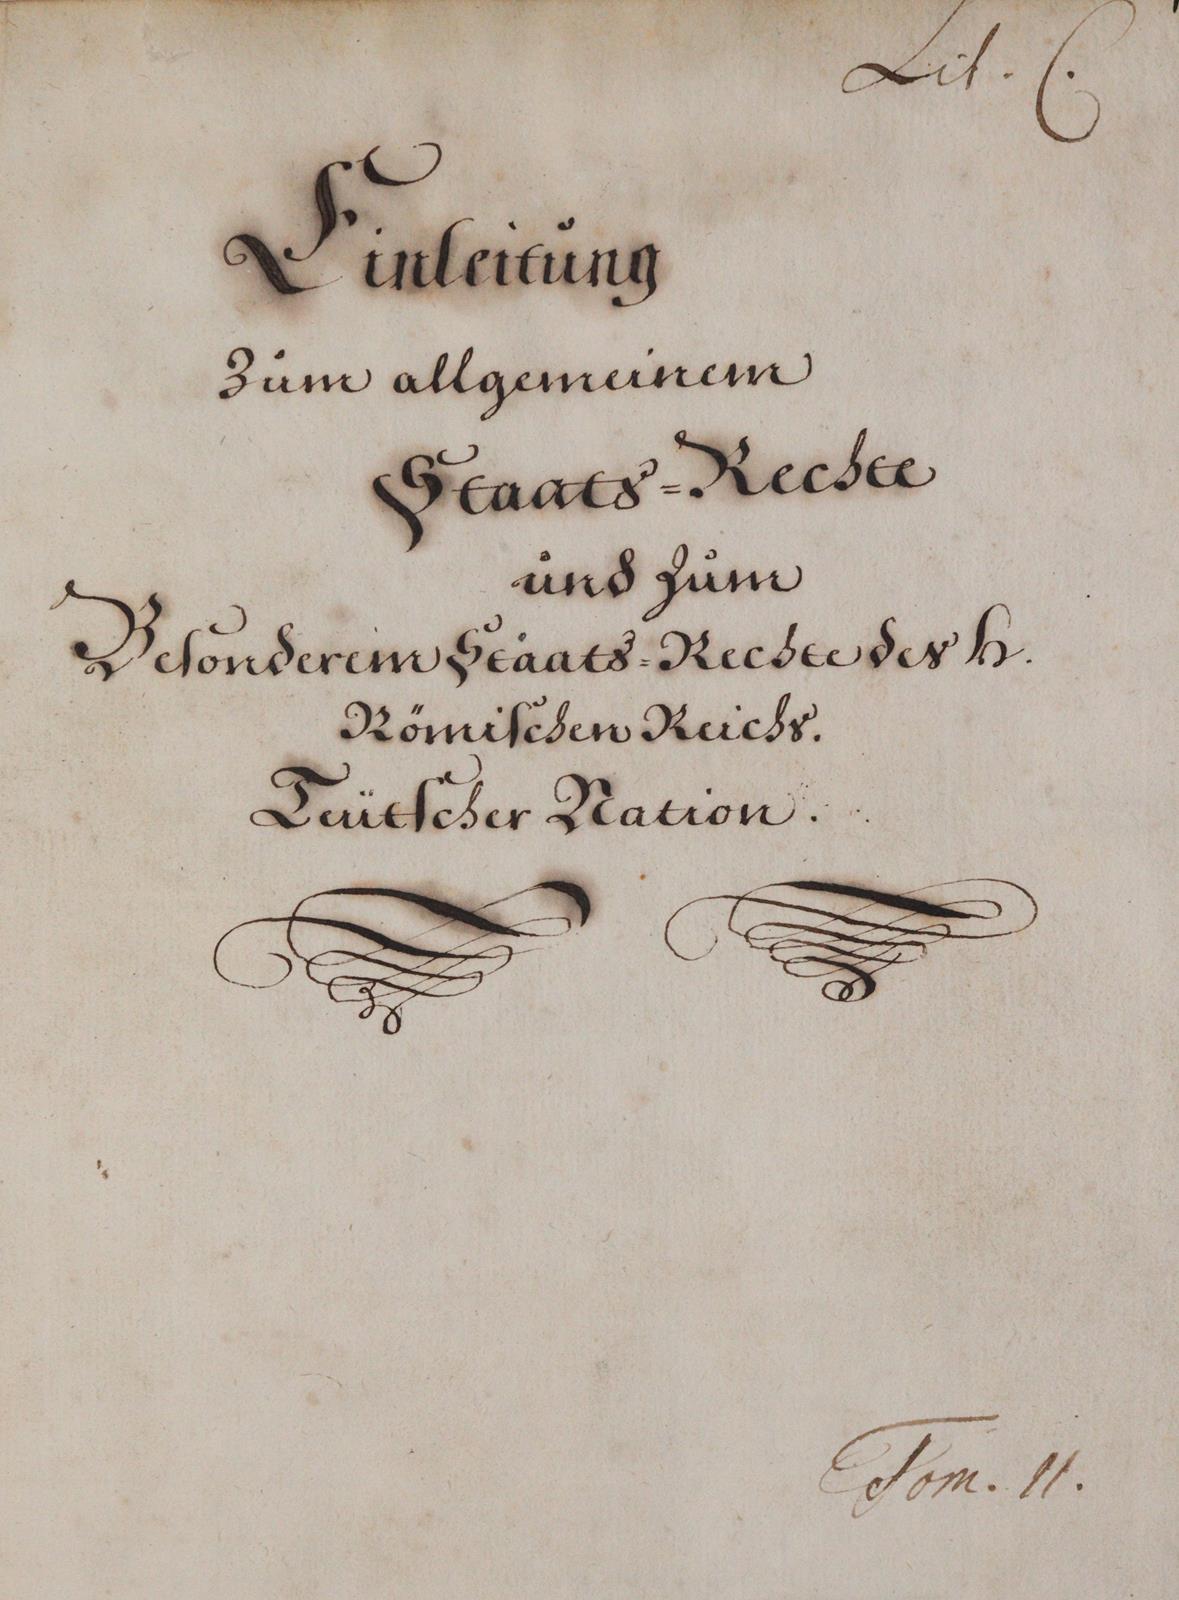 Lit. C.
Einleitung
Zum allgemeinem
Staats=Rechte
und zum
Besonderem Staats=Rechte des h.
Römischen Reichs.
Teütscher Nation.
Tom. II.